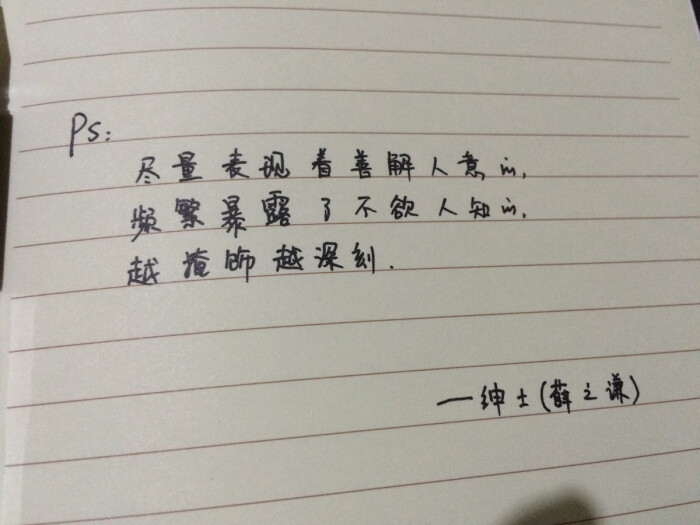 Ps:
尽量表现着善解人意的,
频繁暴露了不欲人知的.
越掩饰越深刻.
—绅士(薛之谦)